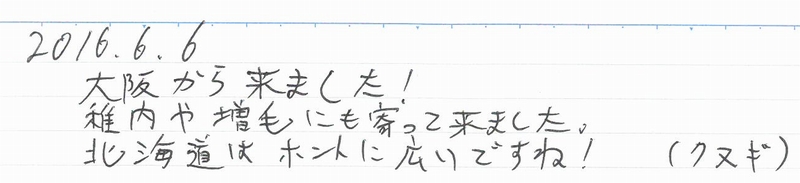 2016.6.6
大阪から来ました!
稚内や増毛にも寄って来ました。
北海道はホントに広いですね! (クヌギ)